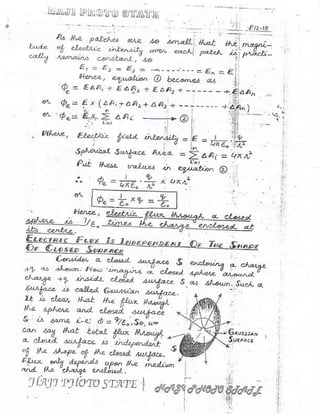 HAJI PHOTO STATE
P12-18
As the patches are so small that the magni-
tude of electric intensity over each patch is practi-
cally remains constant, so
E₁ = E₂ = E₃ = ---------- = Eₙ = E
Hence, equation ① becomes as
Φₑ = EΔA₁ + EΔA₂ + EΔA₃ + ------ + EΔAₙ
or Φₑ = E × (ΔA₁ + ΔA₂ + ΔA₃ + ------ + ΔAₙ)
or Φₑ = E × Σ ΔAᵢ → ②
Where, Electric field intensity = E = 1/4πε₀ · q/r²
Spherical Surface Area = Σ ΔAᵢ = 4πr²
Put these values in equation ②
∴ Φₑ = 1/4πε₀ · q/r² × 4πr²
or Φₑ = 1/ε₀ × q = q/ε₀
Hence, electric flux through a closed
sphere is 1/ε₀ times the charge enclosed at
its centre.
ELECTRIC FLUX IS INDEPENDENT OF THE SHAPE
OF CLOSED SURFACE
Consider a closed surface S enclosing a charge
+q as shown. Now imagine a closed sphere around
charge +q inside closed surface S as shown. Such a
surface is called Gaussian surface.
It is clear that the flux through
the sphere and closed surface
S is same i.e; Φ = q/ε₀. So, we
can say that total flux through
a closed surface is independent
of the shape of the closed surface.
Flux only depends upon the medium
and the charge enclosed.
GAUSSIAN
SURFACE
S
HAJI PHOTO STATE